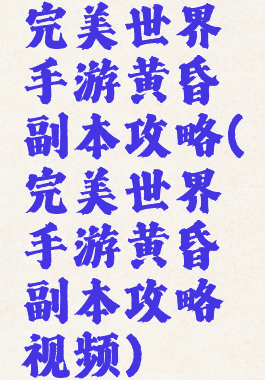 完美世界
手游黄昏
副本攻略(
完美世界
手游黄昏
副本攻略
视频)